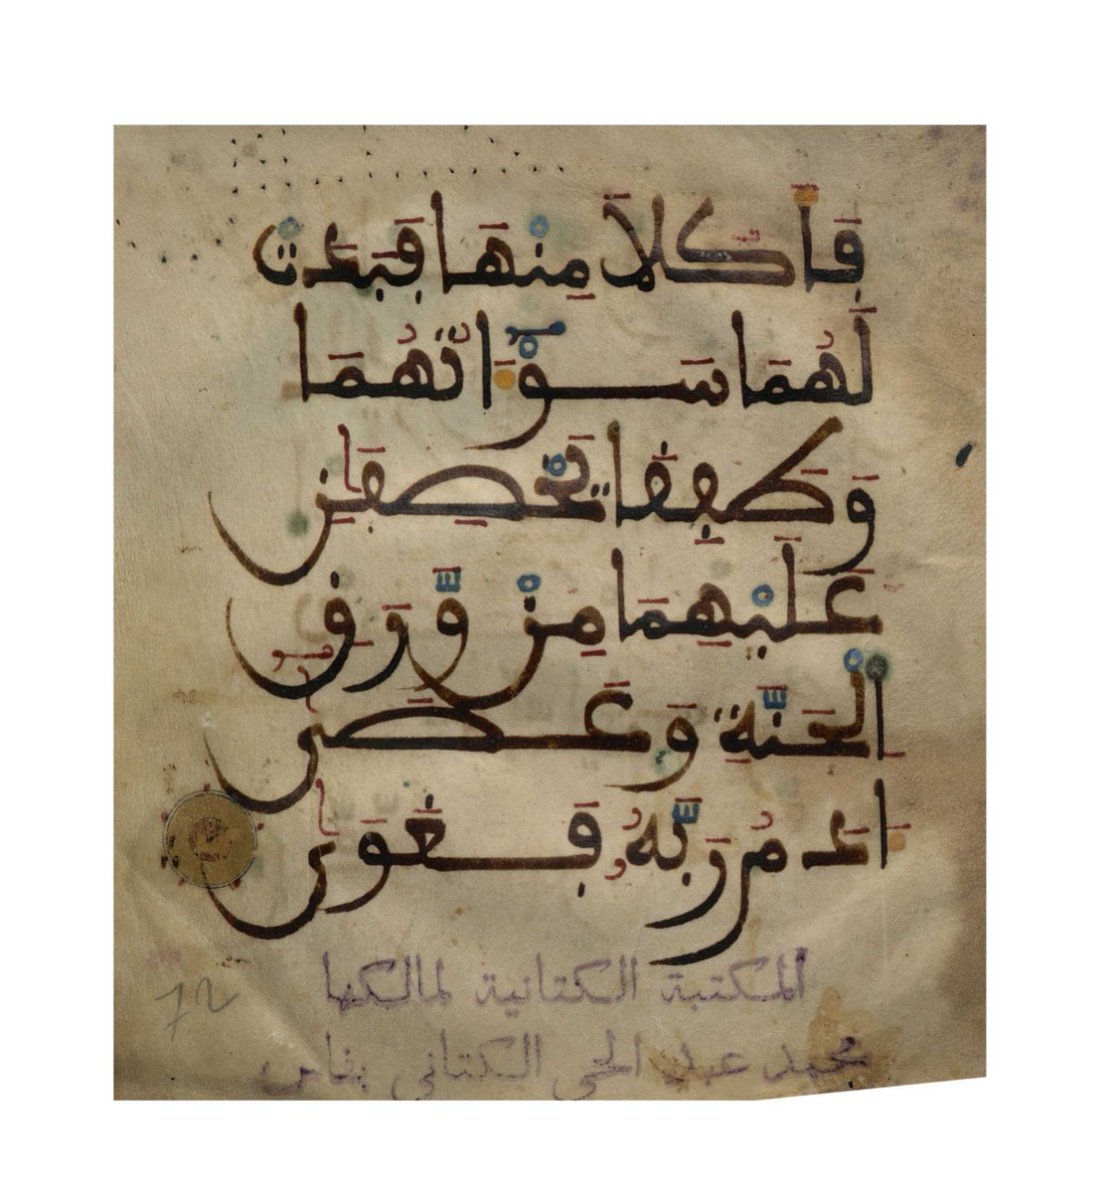 فَأَكَلَا مِنْهَا فَبَدَتْ
لَهُمَا سَوْءَٰتُهُمَا
وَطَفِفَا يَخْصِفَٰنِ
عَلَيْهِمَا مِنْ وَّرَقِ
اِ۬لْجَنَّةِ وَعَصَىٰٓ
ءَادَمُ رَبَّهُۥ فَغَوَىٰ
المكتبة الكتانية لمالكها
محمد عبد الحي الكتاني بفاس
72